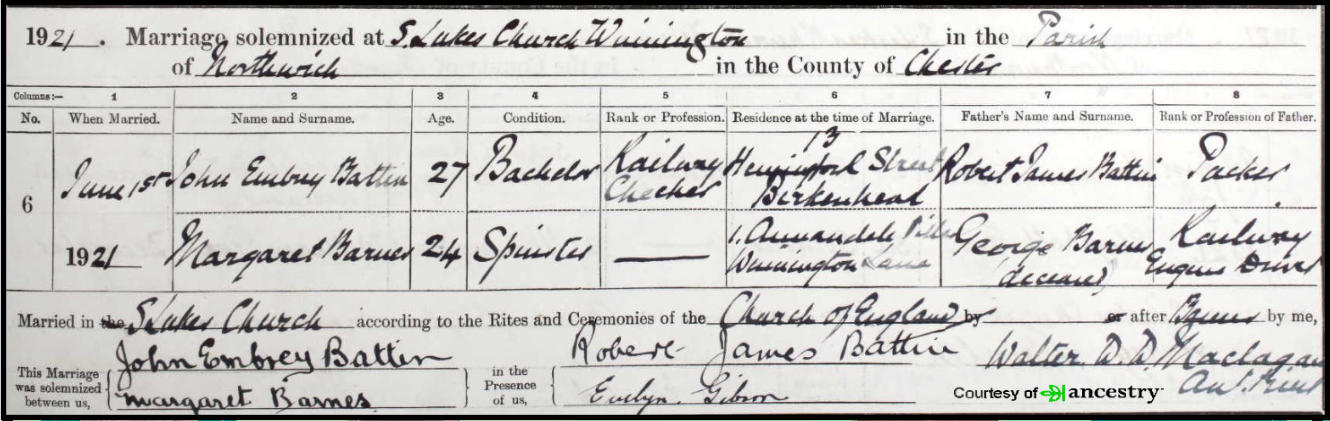 1921. Marriage solemnized at S. Lukes Church Winnington in the Parish
of Northwich in the County of Chester
Columns:— 1 2 3 4 5 6 7 8
No. When Married. Name and Surname. Age. Condition. Rank or Profession. Residence at the time of Marriage. Father's Name and Surname. Rank or Profession of Father.
6 June 1st John Embrey Battin 27 Bachelor Railway Checker 13 Street Birkenhead Robert James Battin Packer
1921 Margaret Barnes 24 Spinster — 1, Annandale Villas Winnington Lane George Barnes (deceased) Railway Engine Driver
Married in the S. Lukes Church according to the Rites and Ceremonies of the Church of England by or after Banns by me,
This Marriage was solemnized between us, John Embrey Battin Margaret Barnes in the Presence of us, Robert James Battin Evelyn Gibson Walter D. D. Maclagan
Courtesy of ancestry